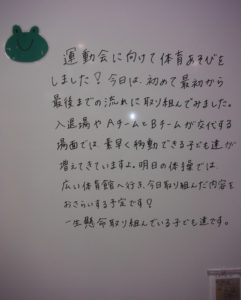 運動会に向けて体育あそびを
しました！今日は、初めて最初から
最後までの流れに取り組んでみました。
入退場やAチームとBチームが交代する
場面では、素早く移動できる子ども達が
増えてきていますよ。明日の体操では、
広い体育館へ行き、今日取り組んだ内容を
おさらいする予定です！
一生懸命取り組んでいる子ども達です。